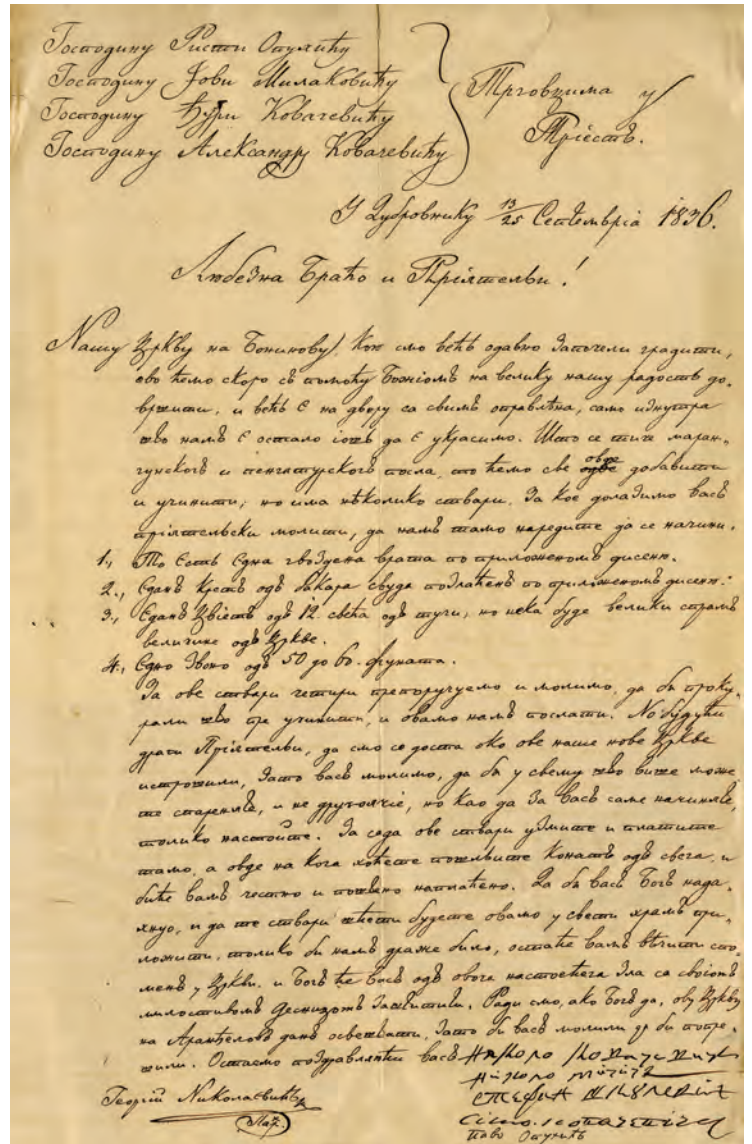 Господину Ристи Опуићу
Господину Јови Милаковићу
Господину Ђури Ковачевићу
Господину Александру Ковачевићу
Трговцима у
Тріестъ.
У Дубровнику 13/25 Септемвріа 1836.
Любезна Браћо и Пріятельи!
Нашу Цркву на Бонинову, кою смо већъ одавно започели градити,
ово ћемо скоро съ помоћу Божіомъ на велику нашу радость до-
вршити. и већъ є на двору са свимъ оправлѣна, само изнутра
што намъ є остало іошъ да є украсимо. Што се тиче маран-
гунскогъ и пенгатурскогъ посла, то ћемо све овде добавити
и учинити; но има нѣколико ствари, за кое долазимо васъ
пріятельски молити, да намъ тамо наредите да се начини.
1., То єсть єдна гвоздена врата по приложеномъ дисеню.
2., Єданъ Крстъ одъ бакара свуда позлаћенъ по приложеномъ дисеню.
3., Єданъ Цвіетъ одъ 12. свећа одъ туча, но нека буде велики спрамъ
величине одъ Цркве.
4., Єдно Звоно одъ 50 до 60. фуната.
За ове ствари четири препоручуємо и молимо, да би проку-
рали што пре учинити, и овамо намъ послати. Но будући
драги Пріятельи, да смо се доста око ове наше нове Цркве
истрошили, зато васъ молимо, да би у свему што више може-
те спаренѣ, и не друголчіе, но као да за васъ саме начинѣте,
толико настойте. За сада ове ствари узмите и платите
тамо, а овде на кога хоћете пошльите Конатъ одъ свега, и
биће вамъ честно и поштено наплаћено. Да би васъ Богъ нада-
хнуо, и да те ствари шћели будете овамо у свети храмъ при-
ложити, толико би намъ драже било, остаће вамъ вѣчити спо-
менъ у Цркви. и Богъ ће васъ одъ овога настоећега зла са своіомъ
милостивомъ десницомъ заштитити. Ради смо, ако Богъ да, ову Цркву
на Аранђеловъ данъ освештати, зато би васъ молили да би потре-
жили. Остаємо поздравляюћи васъ
Георгій Николаєвићъ
Пар.
Стефан
Паво Опуићъ